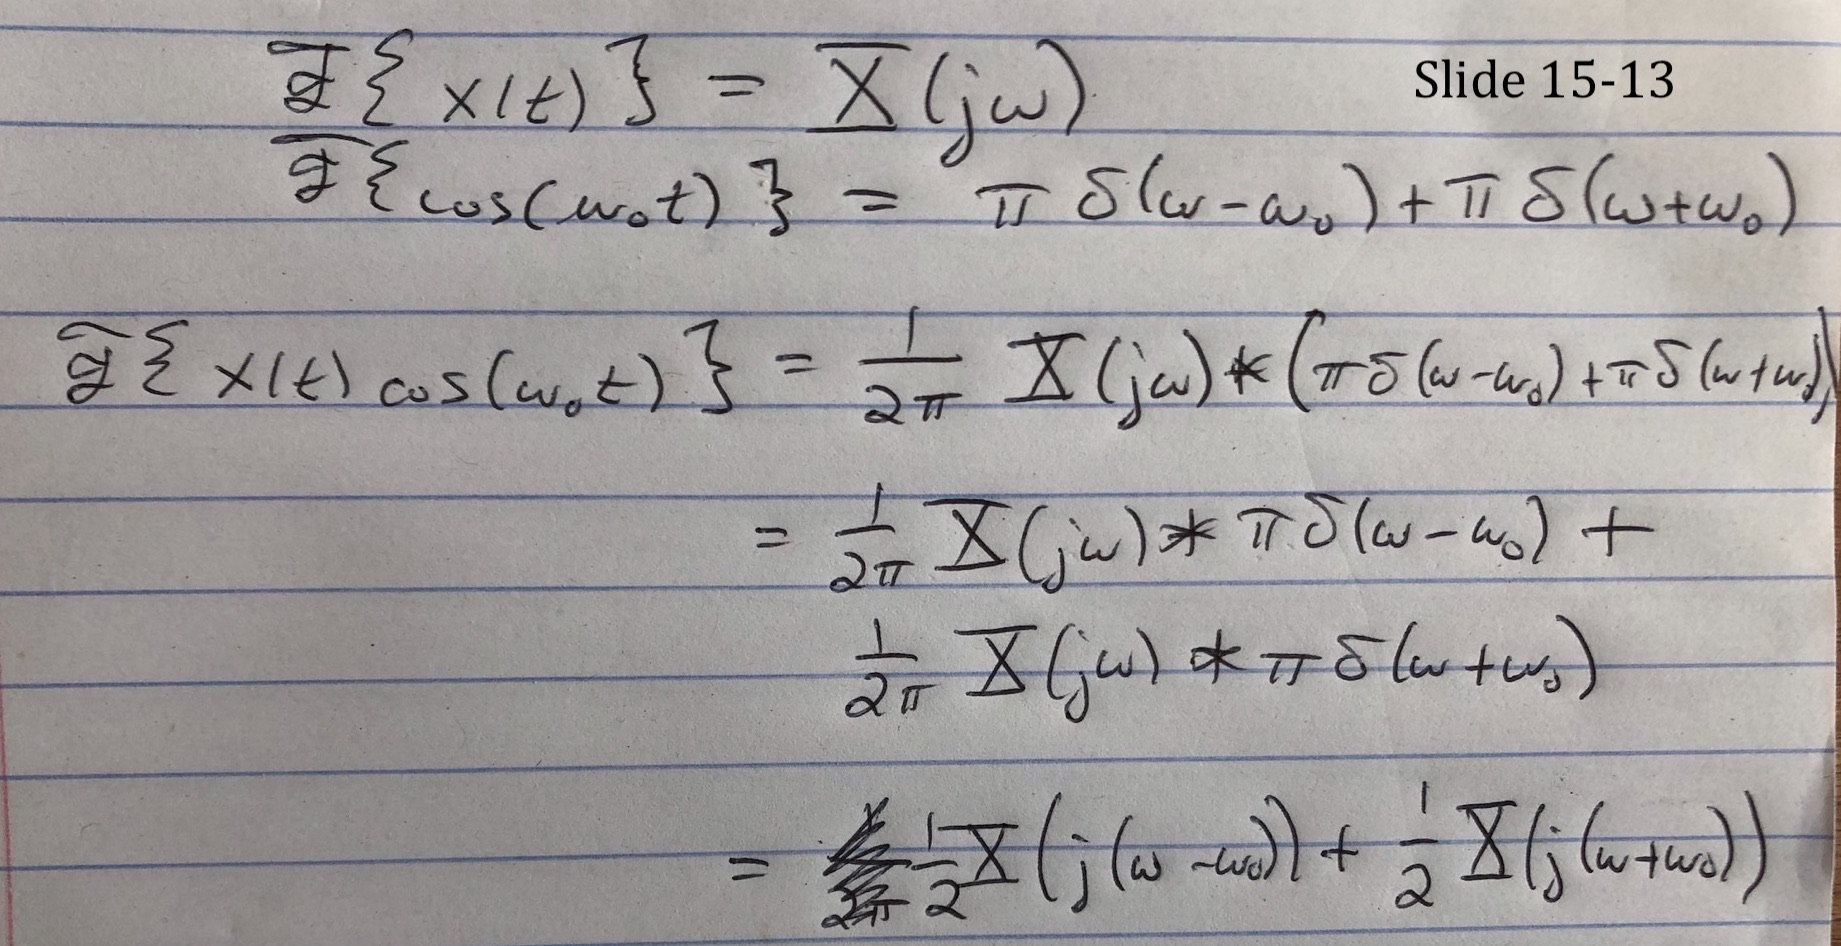 ℱ{x(t)} = X(jω)
Slide 15-13
ℱ{cos(ω₀t)} = π δ(ω-ω₀) + π δ(ω+ω₀)
ℱ{x(t) cos(ω₀t)} = 1/2π X(jω) * (πδ(ω-ω₀) + πδ(ω+ω₀))
= 1/2π X(jω) * πδ(ω-ω₀) +
1/2π X(jω) * πδ(ω+ω₀)
= 1/2 X(j(ω-ω₀)) + 1/2 X(j(ω+ω₀))